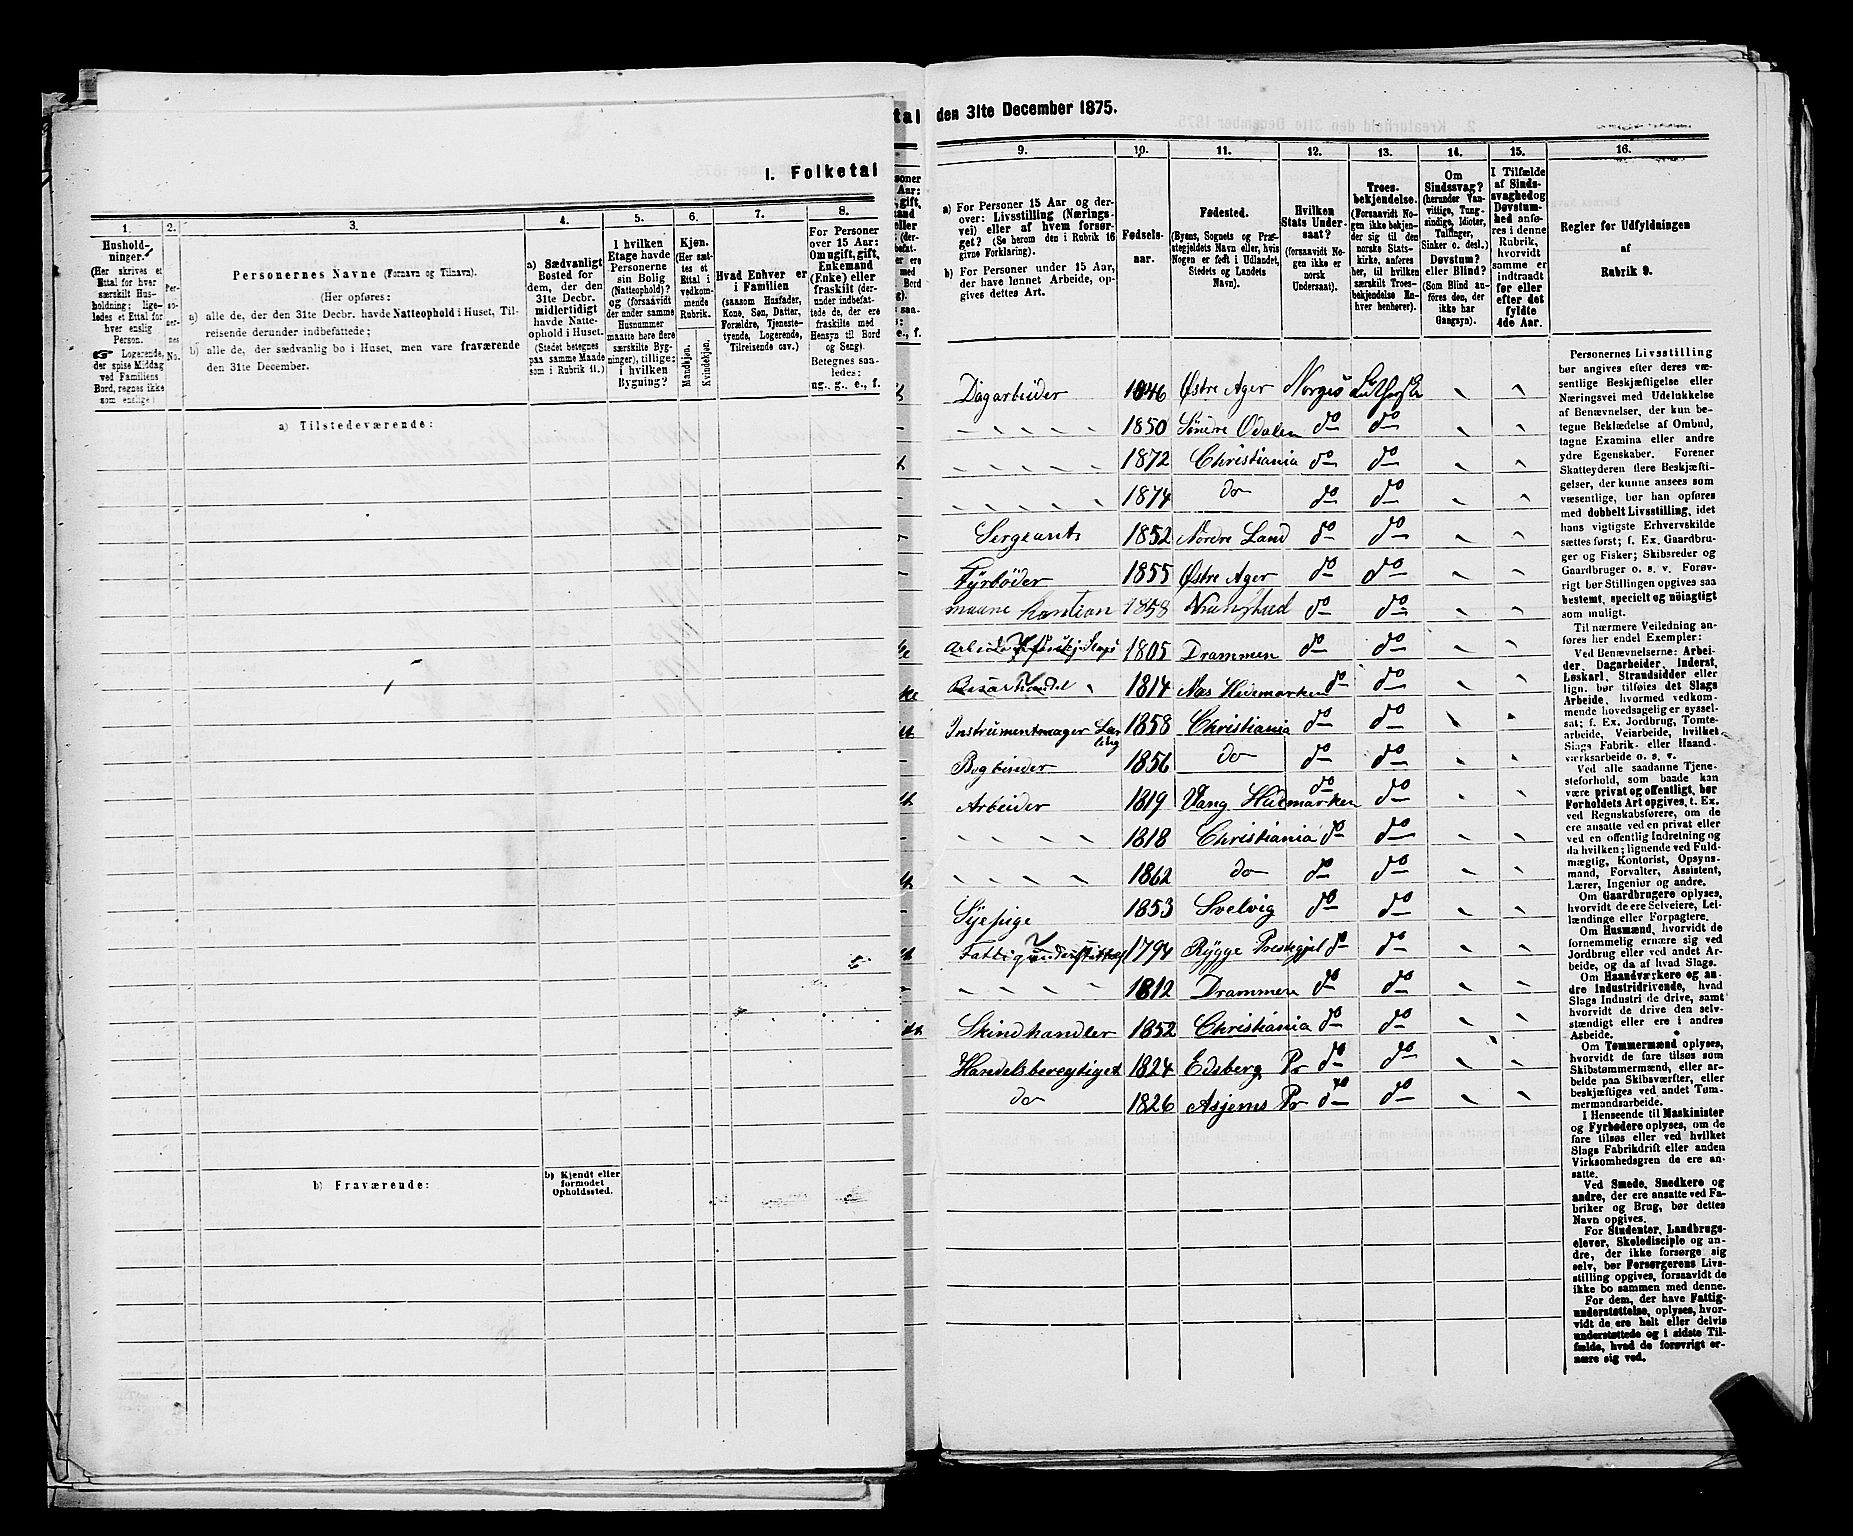 I. Folketal
1.
2.
3.
4.
5.
6.
7.
8.
Hushold-
ninger.
(Her skrives et
Ettal for hver
særskilt Hus-
holdning; lige-
ledes et Ettal for
hver enslig
Person.
☞ Logerende,
der spise Middag
ved Familiens
Bord, regnes ikke
som enslige.)
Per-
so-
ner-
nes
No.
Personernes Navne (Fornavn og Tilnavn).
(Her opføres:
a) alle de, der den 31te Decbr. havde Natteophold i Huset, Til-
reisende derunder indbefattede;
b) alle de, der sædvanlig bo i Huset, men vare fraværende
den 31te December.
a) Sædvanligt
Bosted for
dem, der den
31te Decbr.
midlertidigt
havde Natte-
ophold i Huset.
(Stedet betegnes
paa samme Maade
som i Rubrik 11.)
I hvilken
Etage havde
Personerne
sin Bolig
(Natteophold)?
og (forsaavidt
der under samme
Husnummer
maatte høre flere
særskilte Byg-
ninger), tillige:
i hvilken
Bygning?
Kjøn.
(Her sæt-
tes et
Ettal i
vedkom-
mende
Rubrik.
Mandkjøn.
Kvindekjøn.
Hvad Enhver er
i Familien
(saasom Husfader,
Kone, Søn, Datter,
Forældre, Tjeneste-
tyende, Logerende,
Tilreisende osv.)
For Personer
over 15 Aar:
Om ugift, gift,
Enkemand
(Enke) eller
fraskilt (der-
under indbefat-
tede de, der ere
fraskilte med
Hensyn til Bord
og Seng)
Betegnes saa-
ledes:
ug., g., e., f.
a) Tilstedeværende:
b) Fraværende:
b) Kjendt eller
formodet
Opholdssted.
tal den 31te December 1875.
9.
10.
11.
12.
13.
14.
15.
16.
a) For Personer 15 Aar og der-
over: Livsstilling (Nærings-
vei) eller af hvem forsør-
get? (Se herom den i Rubrik 16
givne Forklaring).
b) For Personer under 15 Aar,
der have lønnet Arbeide, op-
gives dettes Art.
Fødsels-
aar.
Fødested.
(Byens, Sognets og Præ-
stegjeldets Navn eller, hvis
Nogen er født i Udlandet,
Stedets og Landets
Navn).
Hvilken
Stats Under-
saat?
(forsaavidt No-
gen ikke er
norsk
Undersaat).
Troes-
bekjendelse.
(Forsaavidt No-
gen ikke bekjen-
der sig til den
norske Stats-
kirke, anføres
her, til hvilken
særskilt Troes-
bekjendelse En-
hver henhører).
Om
Sindssvag?
(herunder Van-
vittige, Tung-
sindige, Idioter,
Tullinger,
Sinker o. desl.)
Døvstum?
eller Blind?
(Som Blind an-
føres den, der
ikke har
Gangsyn).
I Tilfælde
af Sinds-
svaghed og
Døvstum-
hed anfø-
res i denne
Rubrik,
hvorvidt
samme er
indtraadt
før eller
efter det
fyldte
4de Aar.
Regler for Udfyldningen
af
Rubrik 9.
Dagarbeider 1846 Østre Ager Norges Luthersk
〃 1850 Søndre Odalen do do
〃 1872 Christiania do do
〃 1874 do do do
Sergeant 1852 Nordre Land do do
Fyrbøder 1855 Østre Ager do do
1858 do do
1805 Drammen do do
1814 Næs Hedemarken do do
Instrumentmager Lær
ling 1858 Christiania do do
Bogbinder 1856 do do do
Arbeider 1819 Vang Hedmarken do do
〃 1818 Christiania do do
〃 1862 do do do
Sypige 1853 Svelvig do do
Fattigunderstøttet 1794 Rygge Prestegjel do do
〃 1812 Drammen do do
Skindhandler 1852 Christiania do do
Handelsberegtiget 1824 Edsberg Pr do do
do 1826 Asjems Pr do do
Personernes Livsstilling
bør angives efter deres væ-
sentlige Beskjæftigelse eller
Næringsvei med Udelukkelse
af Benævnelser, der kun be-
tegne Beklædelse af Ombud,
tagne Examina eller andre
ydre Egenskaber. Forener
Skatteyderen flere Beskjæfti-
gelser, der kunne ansees som
væsentlige, bør han opføres
med dobbelt Livsstilling, idet
hans vigtigste Erhvervskilde
sættes først; f. Ex. Gaardbru-
ger og Fisker; Skibsreder og
Gaardbruger o. s. v. Forøv-
rigt bør Stillingen opgives saa
bestemt, specielt og nøiagtigt
som muligt.
Til nærmere Veiledning an-
føres her endel Exempler:
Ved Benævnelserne: Arbei-
der, Dagarbeider, Inderst,
Løskarl, Strandsidder eller
lign. bør tilføies det Slags
Arbeide, hvormed vedkom-
mende hovedsagelig er syssel-
sat; f. Ex. Jordbrug, Tomte-
arbeide, Veiarbeide, hvilket
Slags Fabrik- eller Haand-
værksarbeide o. s. v.
Ved alle saadanne Tjene-
steforhold, som baade kan
være privat og offentligt, bør
Forholdets Art opgives, t. Ex.
ved Regnskabsførere, om de
ere ansatte ved en privat eller
ved en offentlig Indretning og
da hvilken; lignende ved Fuld-
mægtig, Kontorist, Opsyns-
mand, Forvalter, Assistent,
Lærer, Ingeniør og andre.
Om Gaardbrugere oplyses,
hvorvidt de ere Selveiere, Lei-
lændinge eller Forpagtere.
Om Husmænd, hvorvidt de
fornemmelig ernære sig ved
Jordbrug eller ved andet Ar-
beide, og da af hvad Slags.
Om Haandværkere og an-
dre Industridrivende, hvad
Slags Industri de drive, samt
hvorvidt de drive den selv-
stændigt eller ere i andres
Arbeide.
Om Tømmermænd oplyses,
hvorvidt de fare tilsøs som
Skibstømmermænd, eller ar-
beide paa Skibsværfter, eller
beskjæftiges ved andet Tøm-
mermandsarbeide.
I Henseende til Maskinister
og Fyrbødere oplyses, om de
fare tilsøs eller ved hvilket
Slags Fabrikdrift eller anden
Virksomhedsgren de ere an-
satte.
Ved Smede, Snedkere og
andre, der ere ansatte ved Fa-
briker og Brug, bør dettes
Navn opgives.
For Studenter, Landbrugs-
elever, Skoledisciple og an-
dre, der ikke forsørge sig
selv, bør Forsørgerens Livs-
stilling opgives, forsaavidt de
ikke bo sammen med denne.
For dem, der have Fattig-
understøttelse, oplyses, hvor-
vidt de ere helt eller delvis
understøttede og i sidste Til-
fælde, hvad de forøvrigt er-
nære sig ved.